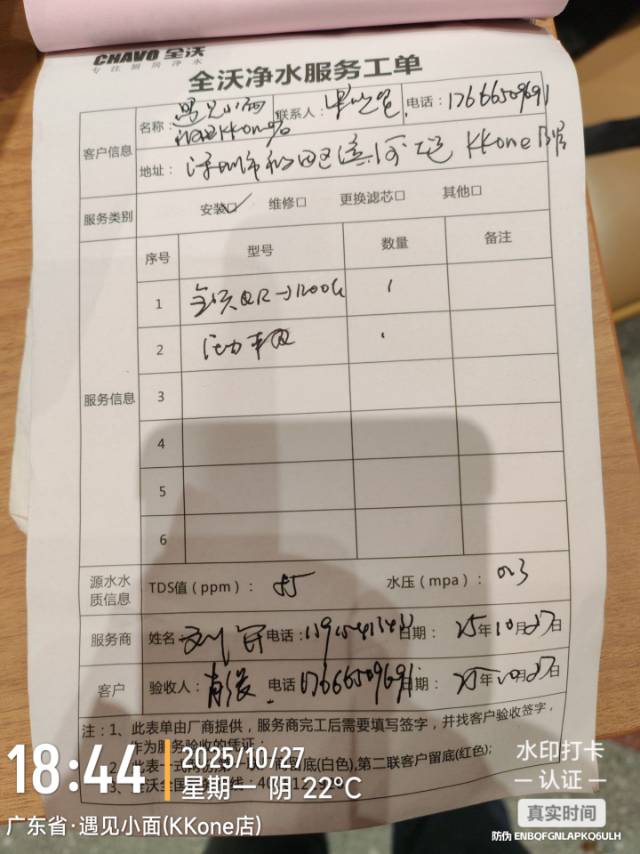 CHAVO 全沃
专注厨房净水
全沃净水服务工单
客户信息
名称： 遇见小面 KKone店 联系人： 电话：17666509691
地址： 深圳市福田区滨河大道 KKone B1层
服务类别 安装☑ 维修口 更换滤芯口 其他口
服务信息
序号 型号 数量 备注
1 全沃QR-J1200G 1
2 1
3
4
5
6
源水水质信息 TDS值（ppm）： 85 水压（mpa）： 0.3
服务商 姓名 电话： 日期： 25年10月27日
客户 验收人： 电话 17666509691 日期： 25年10月27日
注：1、此表单由厂商提供，服务商完工后需要填写签字，并找客户验收签字，
作为服务验收的凭证；
2、此表一式两份 留底(白色),第二联客户留底(红色);
3、全沃全国 线：40
18:44 2025/10/27
星期一 阴 22℃
广东省·遇见小面(KKone店)
水印打卡
认证
真实时间
防伪 ENBQFGNLAPKQ6ULH